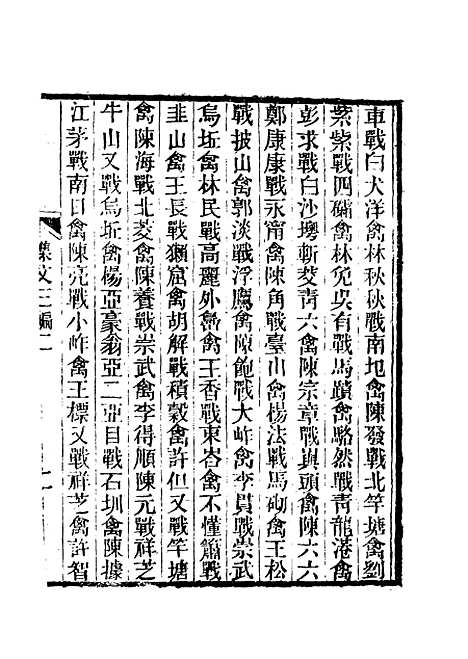 車戰白犬洋禽林秋秋戰南圯禽陳發戰北竿塘禽劉
紫紫戰四礵禽林免吳有戰馬蹟禽駱然戰青龍港禽
彭求戰白沙墺斬夌青六禽陳宗章戰與頭禽陳六六
鄭康康戰永甯禽陳角戰臺山禽楊法戰馬砌禽王松
戰披山禽郭淡戰浮鷹禽陳鮑戰大岞禽李貫戰崇武
烏坵禽林民戰高麗外嶨禽王香戰東峇禽不懂簫戰
韭山禽王長戰獺窟禽胡解戰積穀禽許但又戰竿塘
禽陳海戰北茭禽陳養戰崇武禽李得順陳元戰祥芝
牛山又戰烏坵禽楊亞豪翁亞二亞目戰石圳禽陳據
江茅戰南日禽陳亮戰小岞禽王標又戰祥芝禽許智
集文三編二